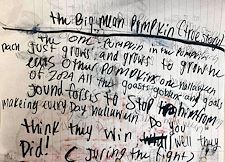 the Big mean Pumpkin (true story)
the one Pumpkin in the Pumpkin
pach Just grows and grows to grow he
eats other Pumpkins one halloween
of 2021 All the goasts goblins and goals
found forses to Stop him from
makeing every Day halloween Do you
think they win Well they
Did! (during the fight)